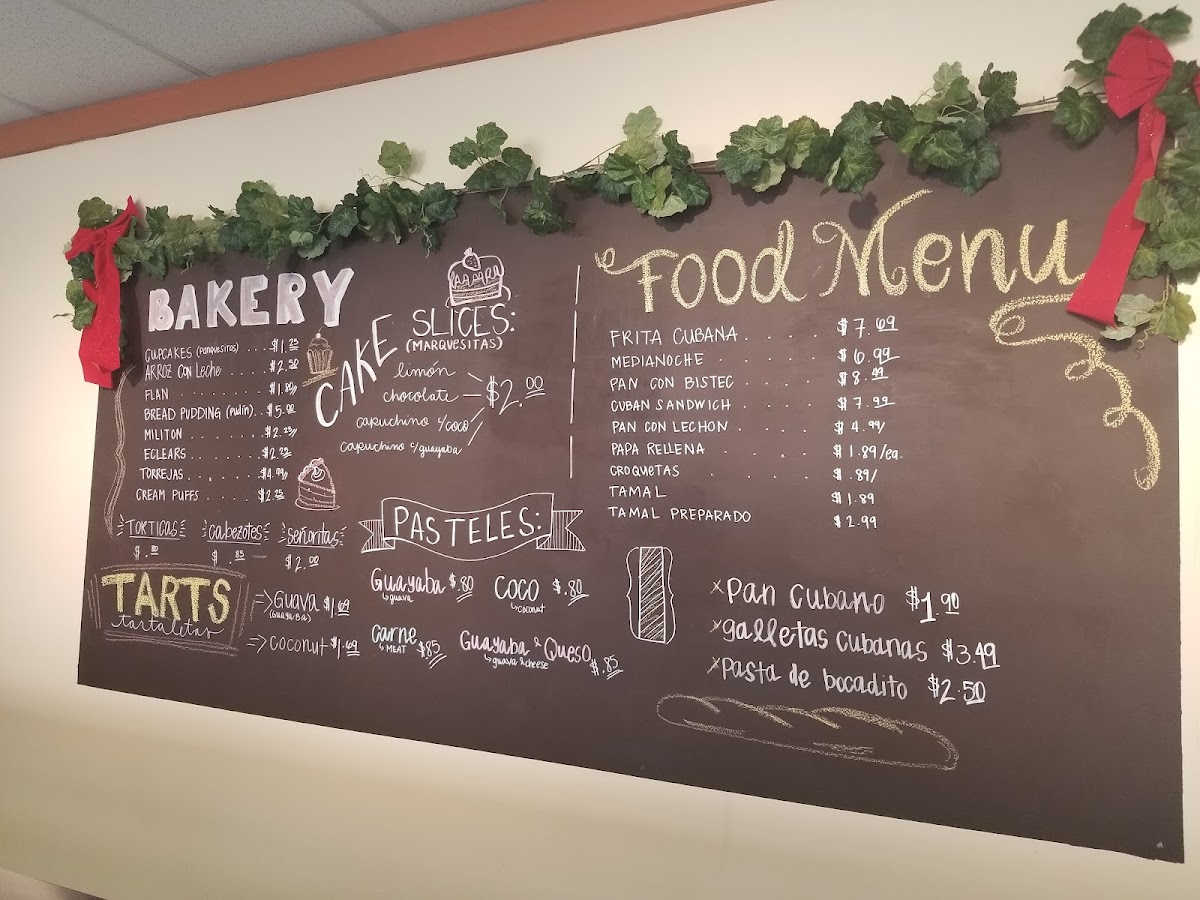 BAKERY
CUPCAKES (panquesitos) . . . $1.25
ARROZ con Leche . . . . $2.50
FLAN . . . . . . . . . $1.89/
BREAD PUDDING (Pudín) . . $5.00
MILITON . . . . . . . $2.25/
ECLEARS . . . . . . $2.25
TORREJAS . . . . . . $4.99/
CREAM PUFFS . . . . . $2.25
TORTICAS
$.80
cabezotes
$.85
señoritas
$2.00
TARTS
tartaletas
-> GUAVA $1.69
(GUAYABA)
-> coconut $1.69
CAKE
SLICES:
(MARQUESITAS)
limón
chocolate
capuchino c/coco
capuchino c/guayaba
$2.00
PASTELES:
Guayaba $.80
guava
COCO $.80
coconut
Carne $.85
MEAT
Guayaba & Queso $.85
guava & cheese
Food Menu
FRITA CUBANA . . . . $7.69
MEDIANOCHE . . . . $6.99
PAN CON BISTEC . . . . $8.49
CUBAN SANDWICH . . . . $7.99
PAN CON LECHON . . . . $4.99/
PAPA RELLENA . . . . $1.89/ea.
CROQUETAS . . . . $.89/
TAMAL $1.89
TAMAL PREPARADO $2.99
x Pan Cubano $1.90
x galletas Cubanas $3.49
x pasta de bocadito $2.50